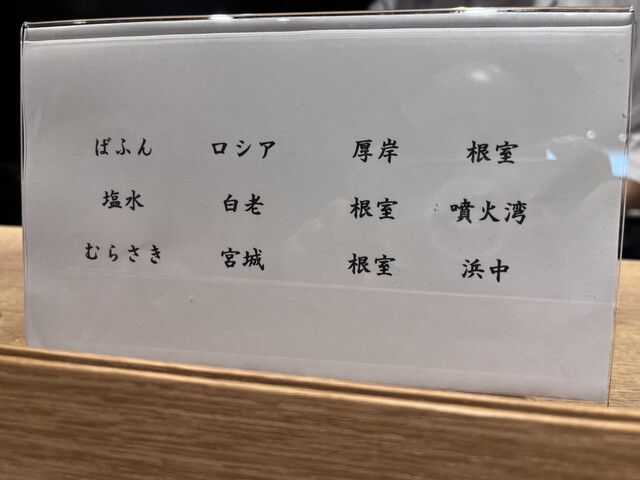 ばふん ロシア 厚岸 根室
塩水 白老 根室 噴火湾
むらさき 宮城 根室 浜中